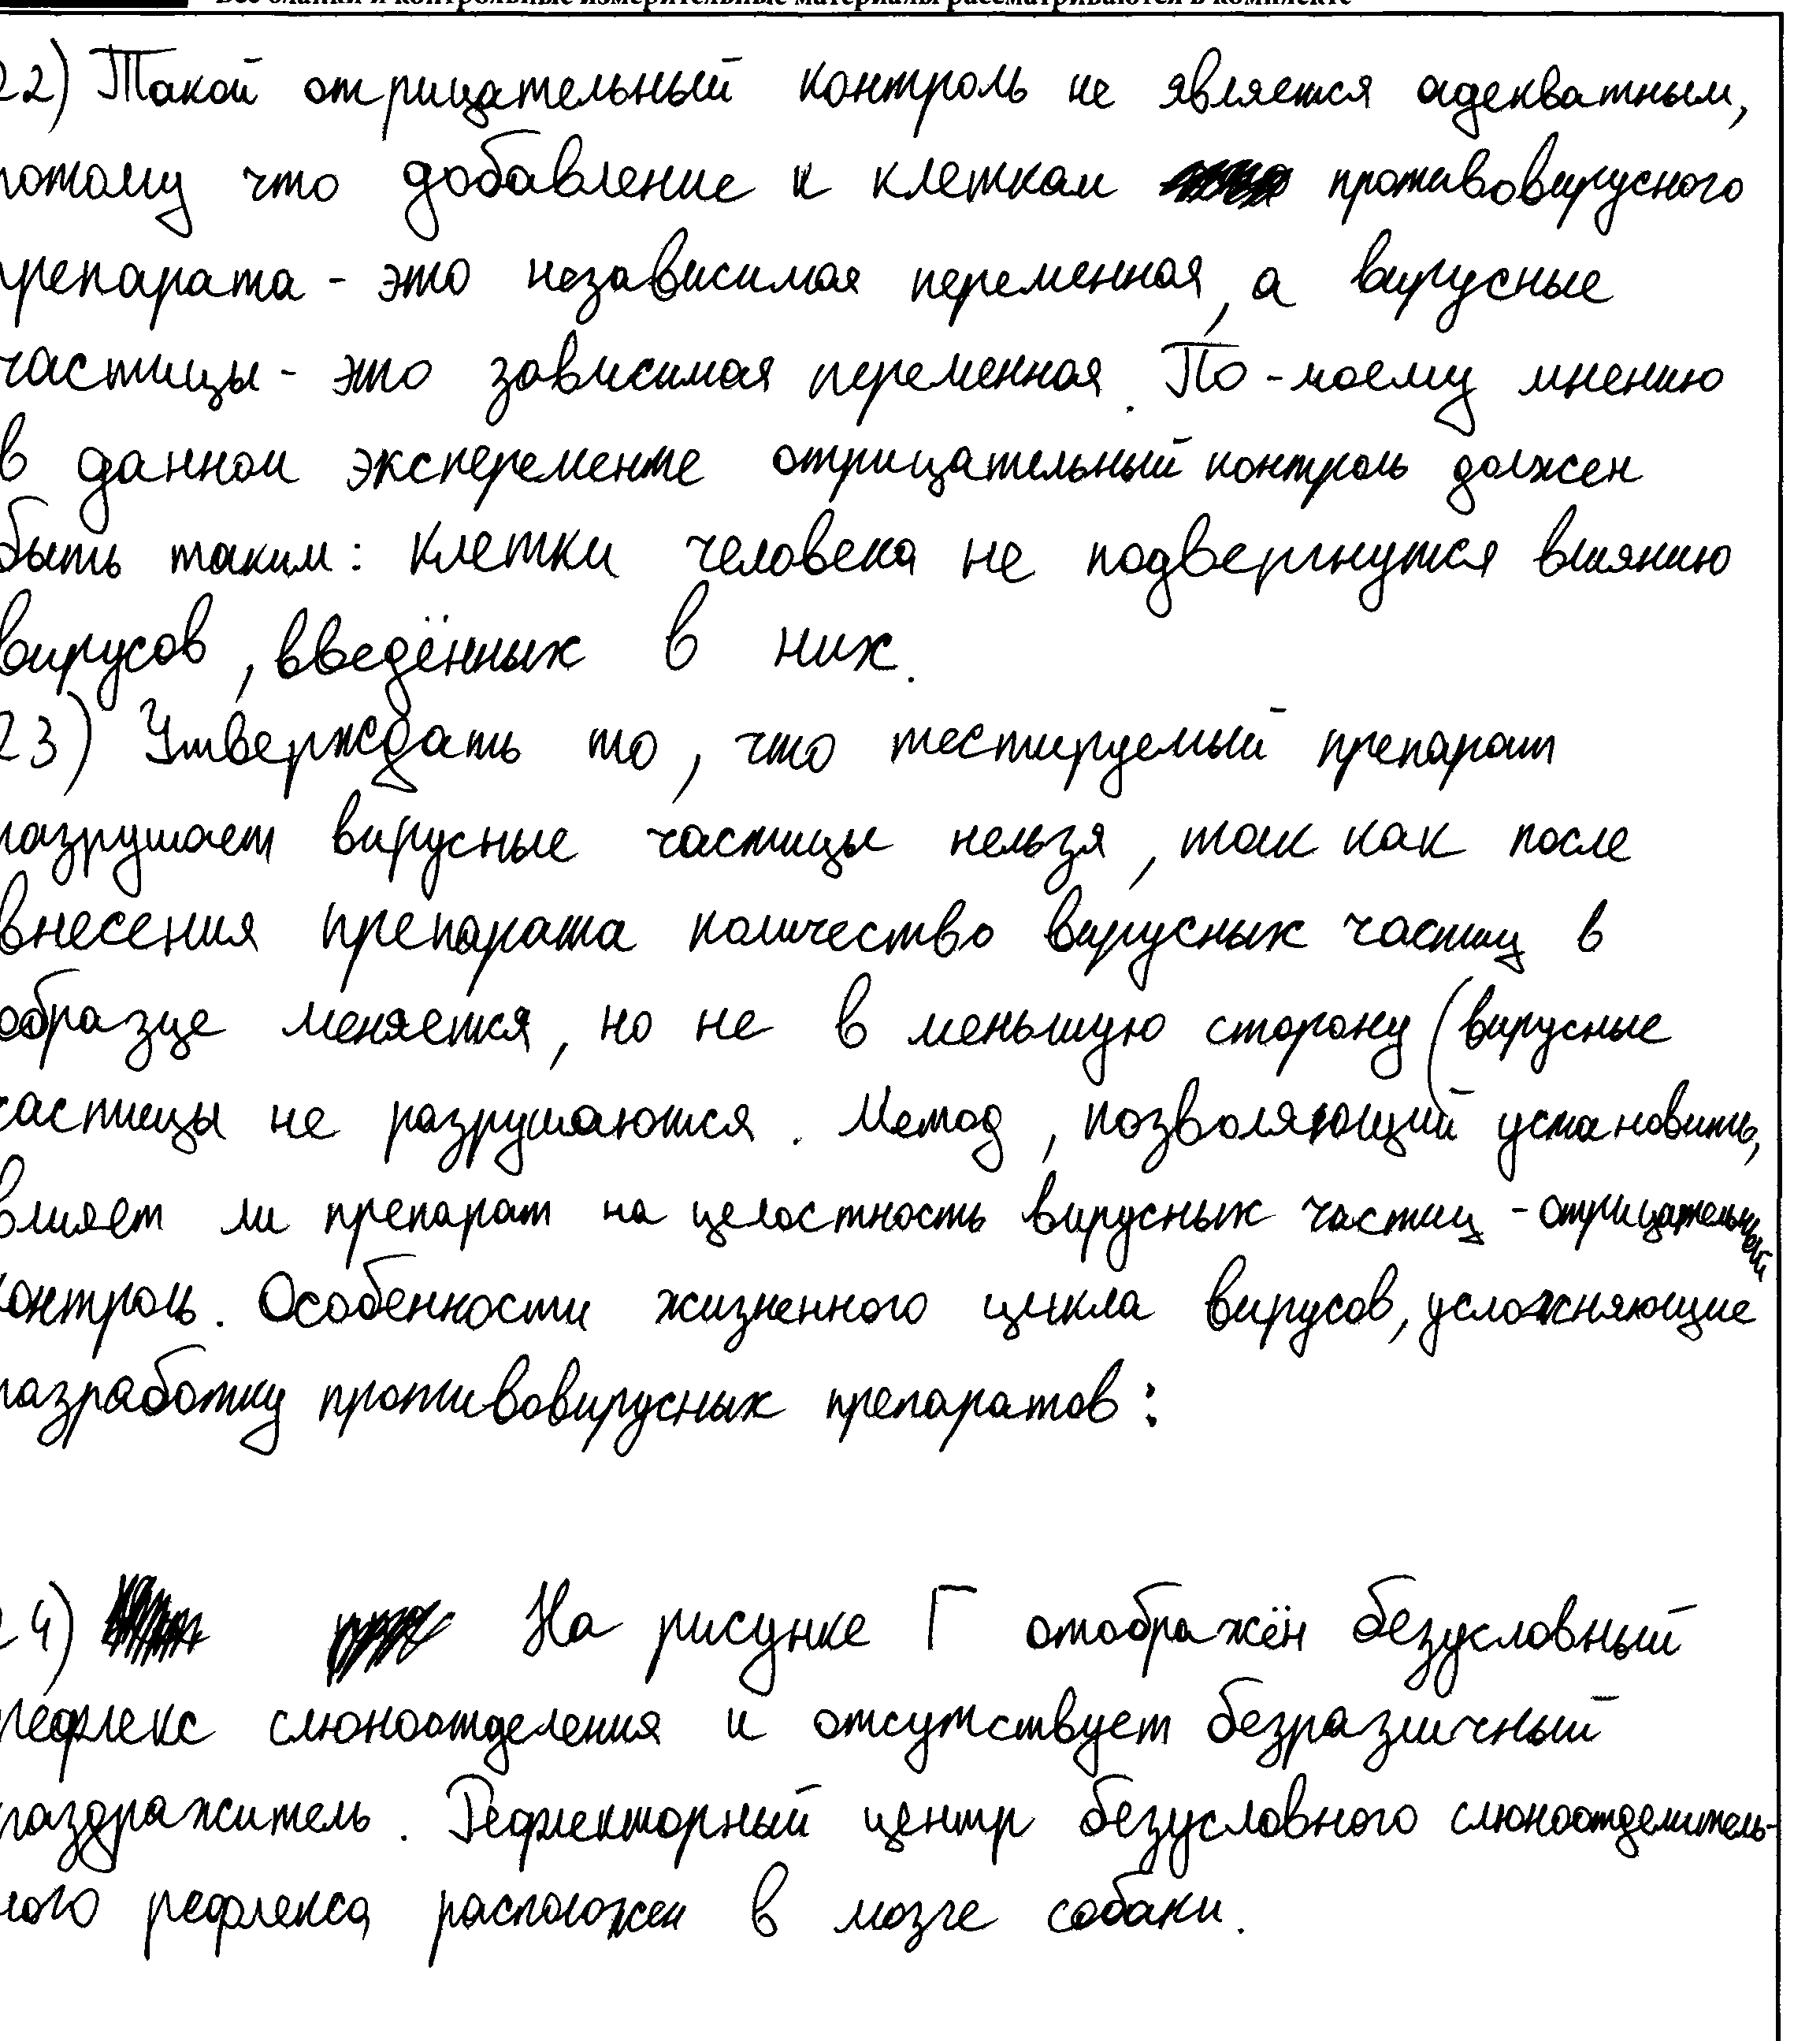 Все бланки и контрольные измерительные материалы рассматриваются в комплекте
22) Такой отрицательный контроль не является адекватным,
потому что добавление к клеткам противовирусного
препарата - это независимая переменная, а вирусные
частицы - это зависимая переменная. По-моему мнению
в данном эксперементе отрицательный контроль должен
быть таким: клетки человека не подвергнутся влиянию
вирусов, введённых в них.
23) Утверждать то, что тестируемый препарат
разрушает вирусные частицы нельзя, так как после
внесения препарата количество вирусных частиц в
образце меняется, но не в меньшую сторону (вирусные
частицы не разрушаются. Метод, позволяющий установить,
влияет ли препарат на целостность вирусных частиц - отрицательный
контроль. Особенности жизненного цикла вирусов, усложняющие
разработку противовирусных препаратов:
24) На рисунке Г отображён безусловный
рефлекс слюноотделения и отсутствует безразличный
раздражитель. Рефлекторный центр безусловного слюноотделитель-
ного рефлекса расположен в мозге собаки.